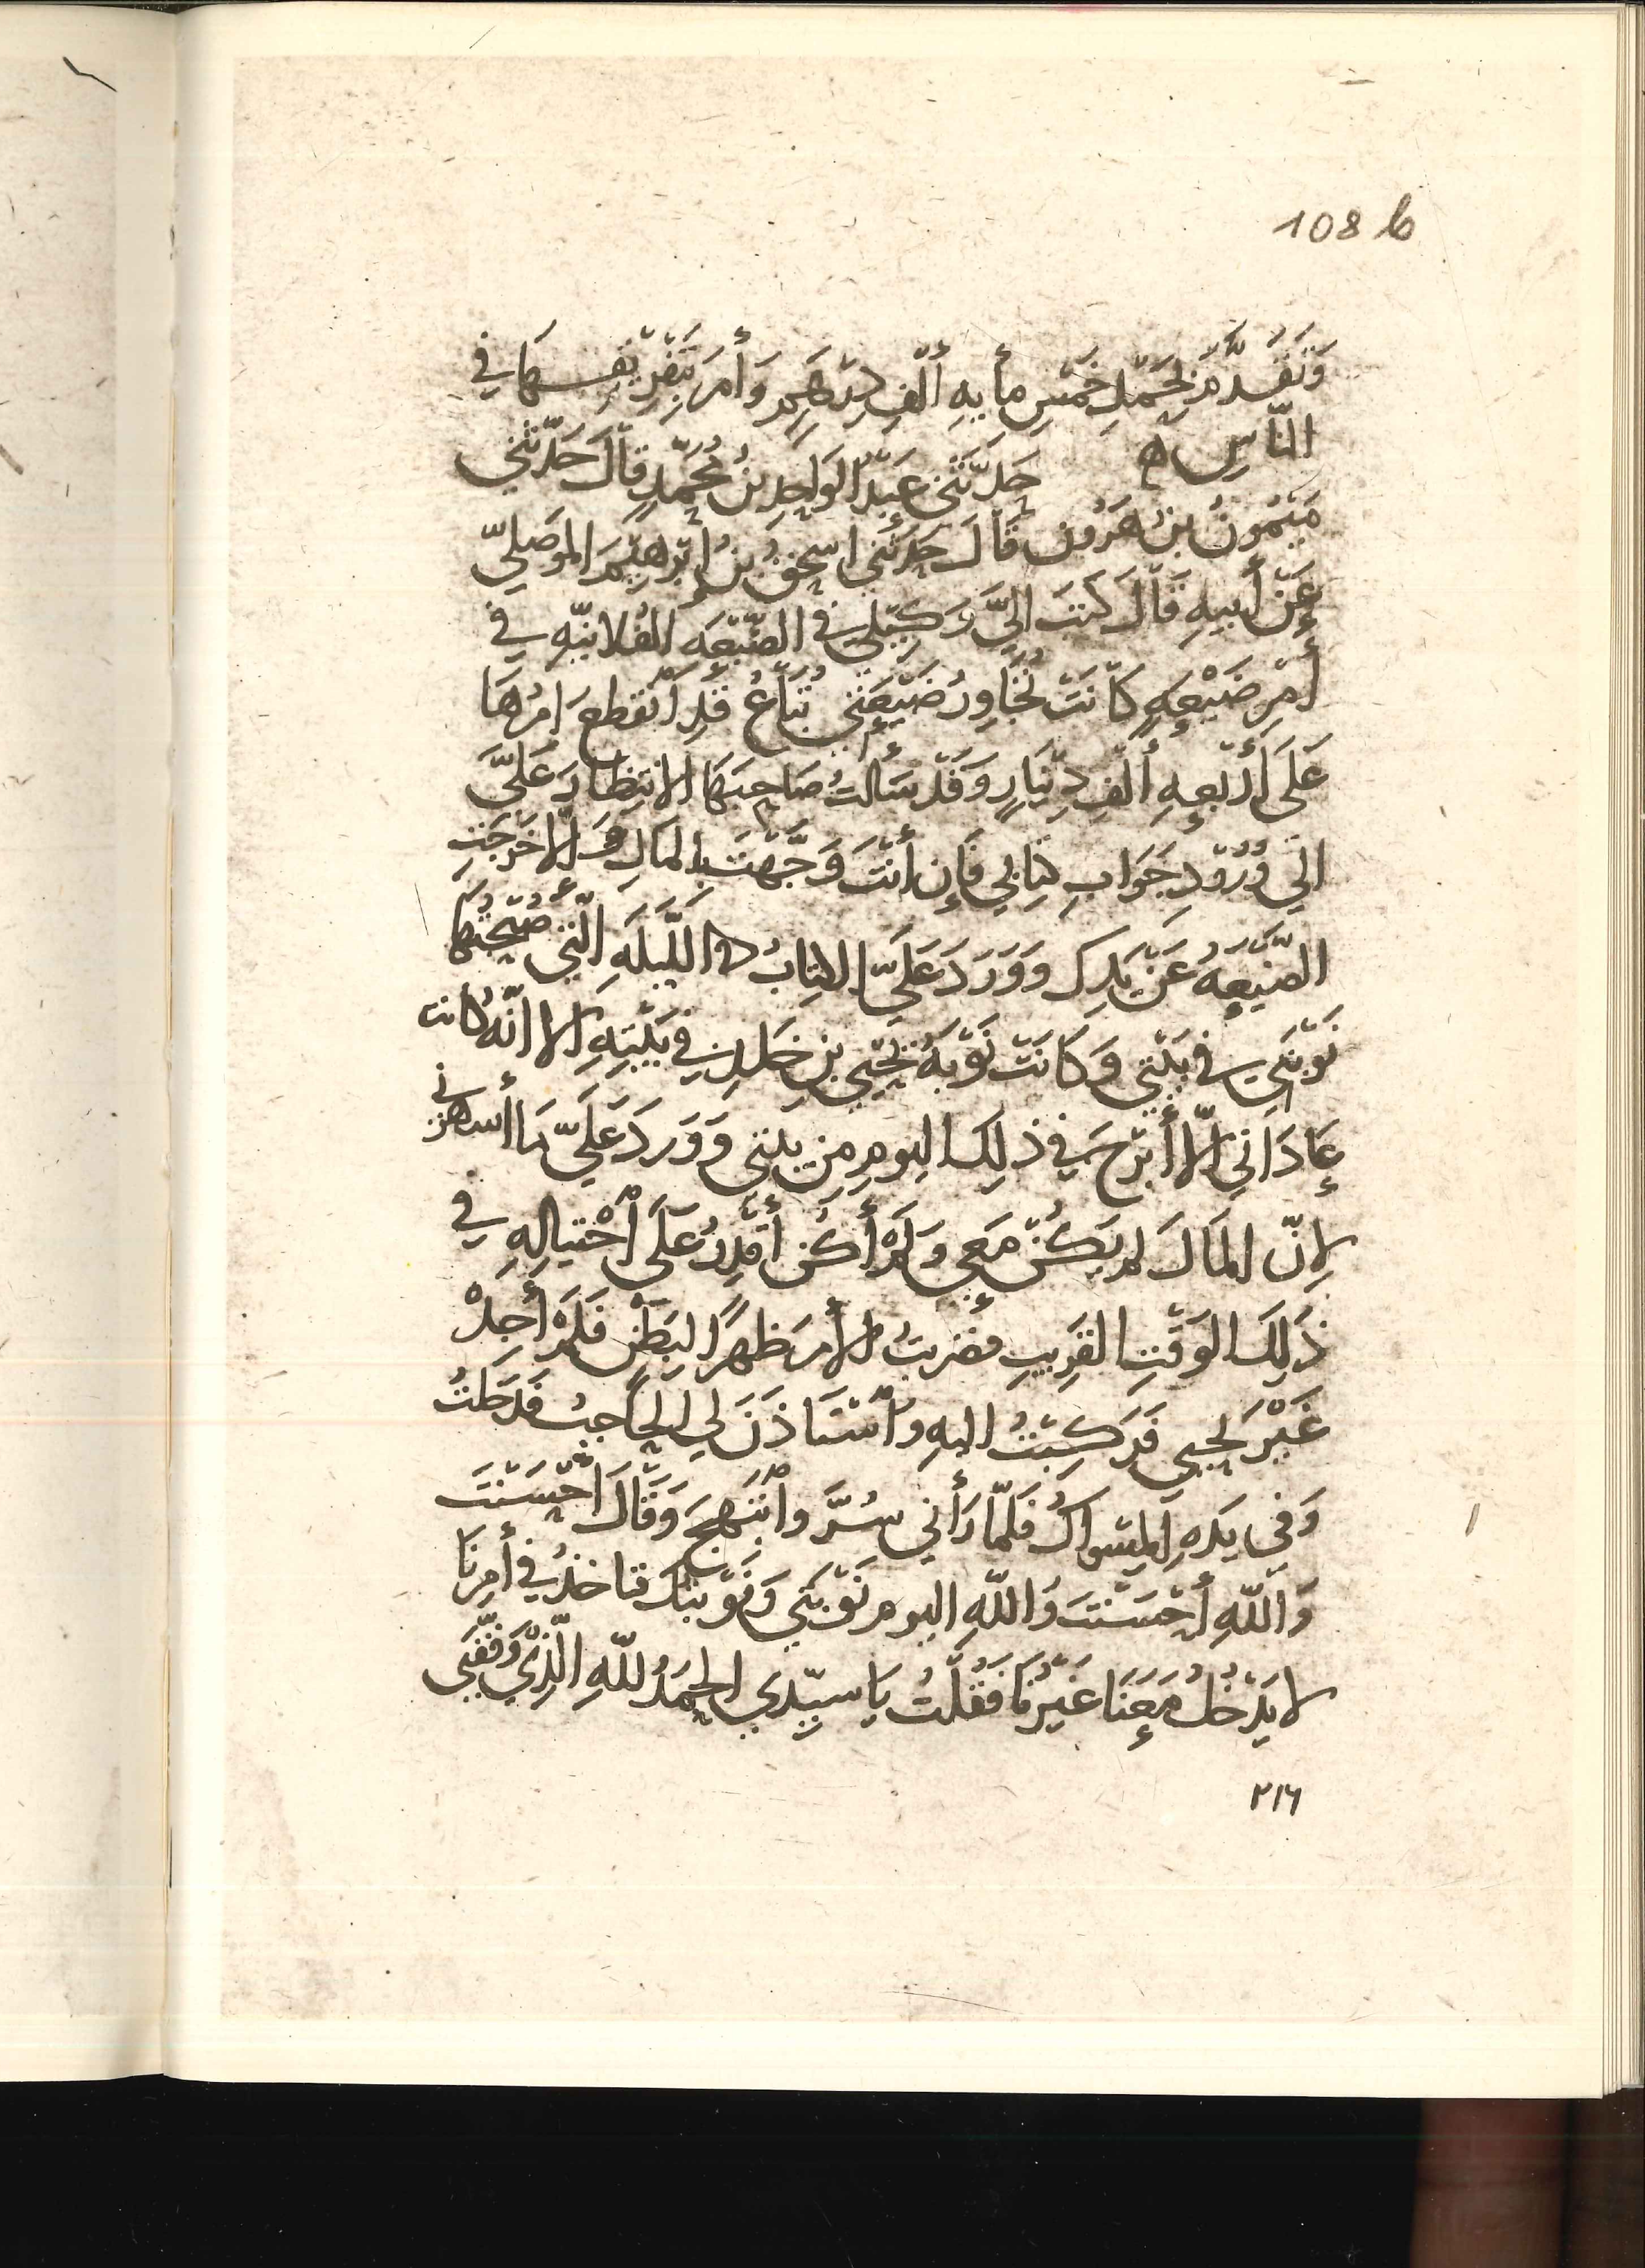 108 b
وَتَقَدَّمَ بِحَمْلِ خَمْسِ مأيهِ أَلْفِ دِرْهَمٍ وَأَمَرَ بِتَفْرِيقِهَا في
النَّاسِ ه حَدَّثَنِي عَبْدُ الوَاحِدِ بنُ مُحَمَّدٍ قَالَ حَدَّثَنِي
مَيْمُونُ بنُ هَرُونَ قَالَ حَدثَنِي اسْحَقُ بنُ إِبْرهِيْمَ المَوصَليّ
عَنْ أَبيهِ قَالَ كَتَبَ اليَّ وَكِيْلِي في الضَّيْعَهِ الفُلانيّهِ في
أَمْرِ ضَيْعَهٍ كَانَتْ تُجَاوِرُ ضَيْعَتِي تُبَاعُ قَدِ اْنقَطعَ اَمْرُهَا
عَلَى أَرْبَعهِ أَلْفِ دِيْنَارٍ وَقَدْ سَأَلتُ صَاحِبَهَا الانتِظَارَ عَلَيَّ
الي وُرُوْدِ جَوَابِ كِتَابي فَإِن أَنْتَ وَجَّهْتَ بِالمَالِ وَالَّا خَرَجَتِ
الضَّيْعَهُ عَنْ يَدِكَ وَوَرَدَ عَلَيَّ الكِتَابُ في اللَّيْلَهِ الَّتِي صُبْحُهَا
نَوْبَتِي في بَيْتِي وَكَانَتْ نَوْبَهُ يَحْيَي بنِ خَلدٍ في بَيْتِهِ الا انَّهُ كانت
عَادَاتِي الَّا أَبْرَحَ في ذلِكَ اليومِ مِن بيتي وَوَرَدَ عَلَيَّ مَا أسهَرني
لِانّ المَالَ لم يَكُنْ مَعِي وَلَمْ أَكُن أَقْدِرُ عَلَى اْحْتيَالِهِ في
ذَلِكَ الوَقْتِ القَرِيبِ فضَربتُ الأَمرَ ظهرًا لبَطْنٍ فَلَمْ أَجِدْ
غَيْرَ يحيى فَرَكِبْتُ اليهِ واْسْتَاذَنَ لي الحَاجبُ فدَخلتُ
وَفي يَدِهِ المِسْوَاكُ فلَمَّا رَأَني سُرَّ واْبْتَهجَ وَقَالَ أَحْسَنْتَ
وَاللّهِ أَحْسَنْتَ وَاللّهِ اليوم نَوْبَتي وَنَوْبتُكَ فتاخذُ في أَمرِنَا
لا يَدْخُلُ مَعَنَا غَيْرُنَا فَقُلْتُ يَا سيّدي الحَمدُ للّهِ الَّذِي وَفَّقَنِي
٢١٦